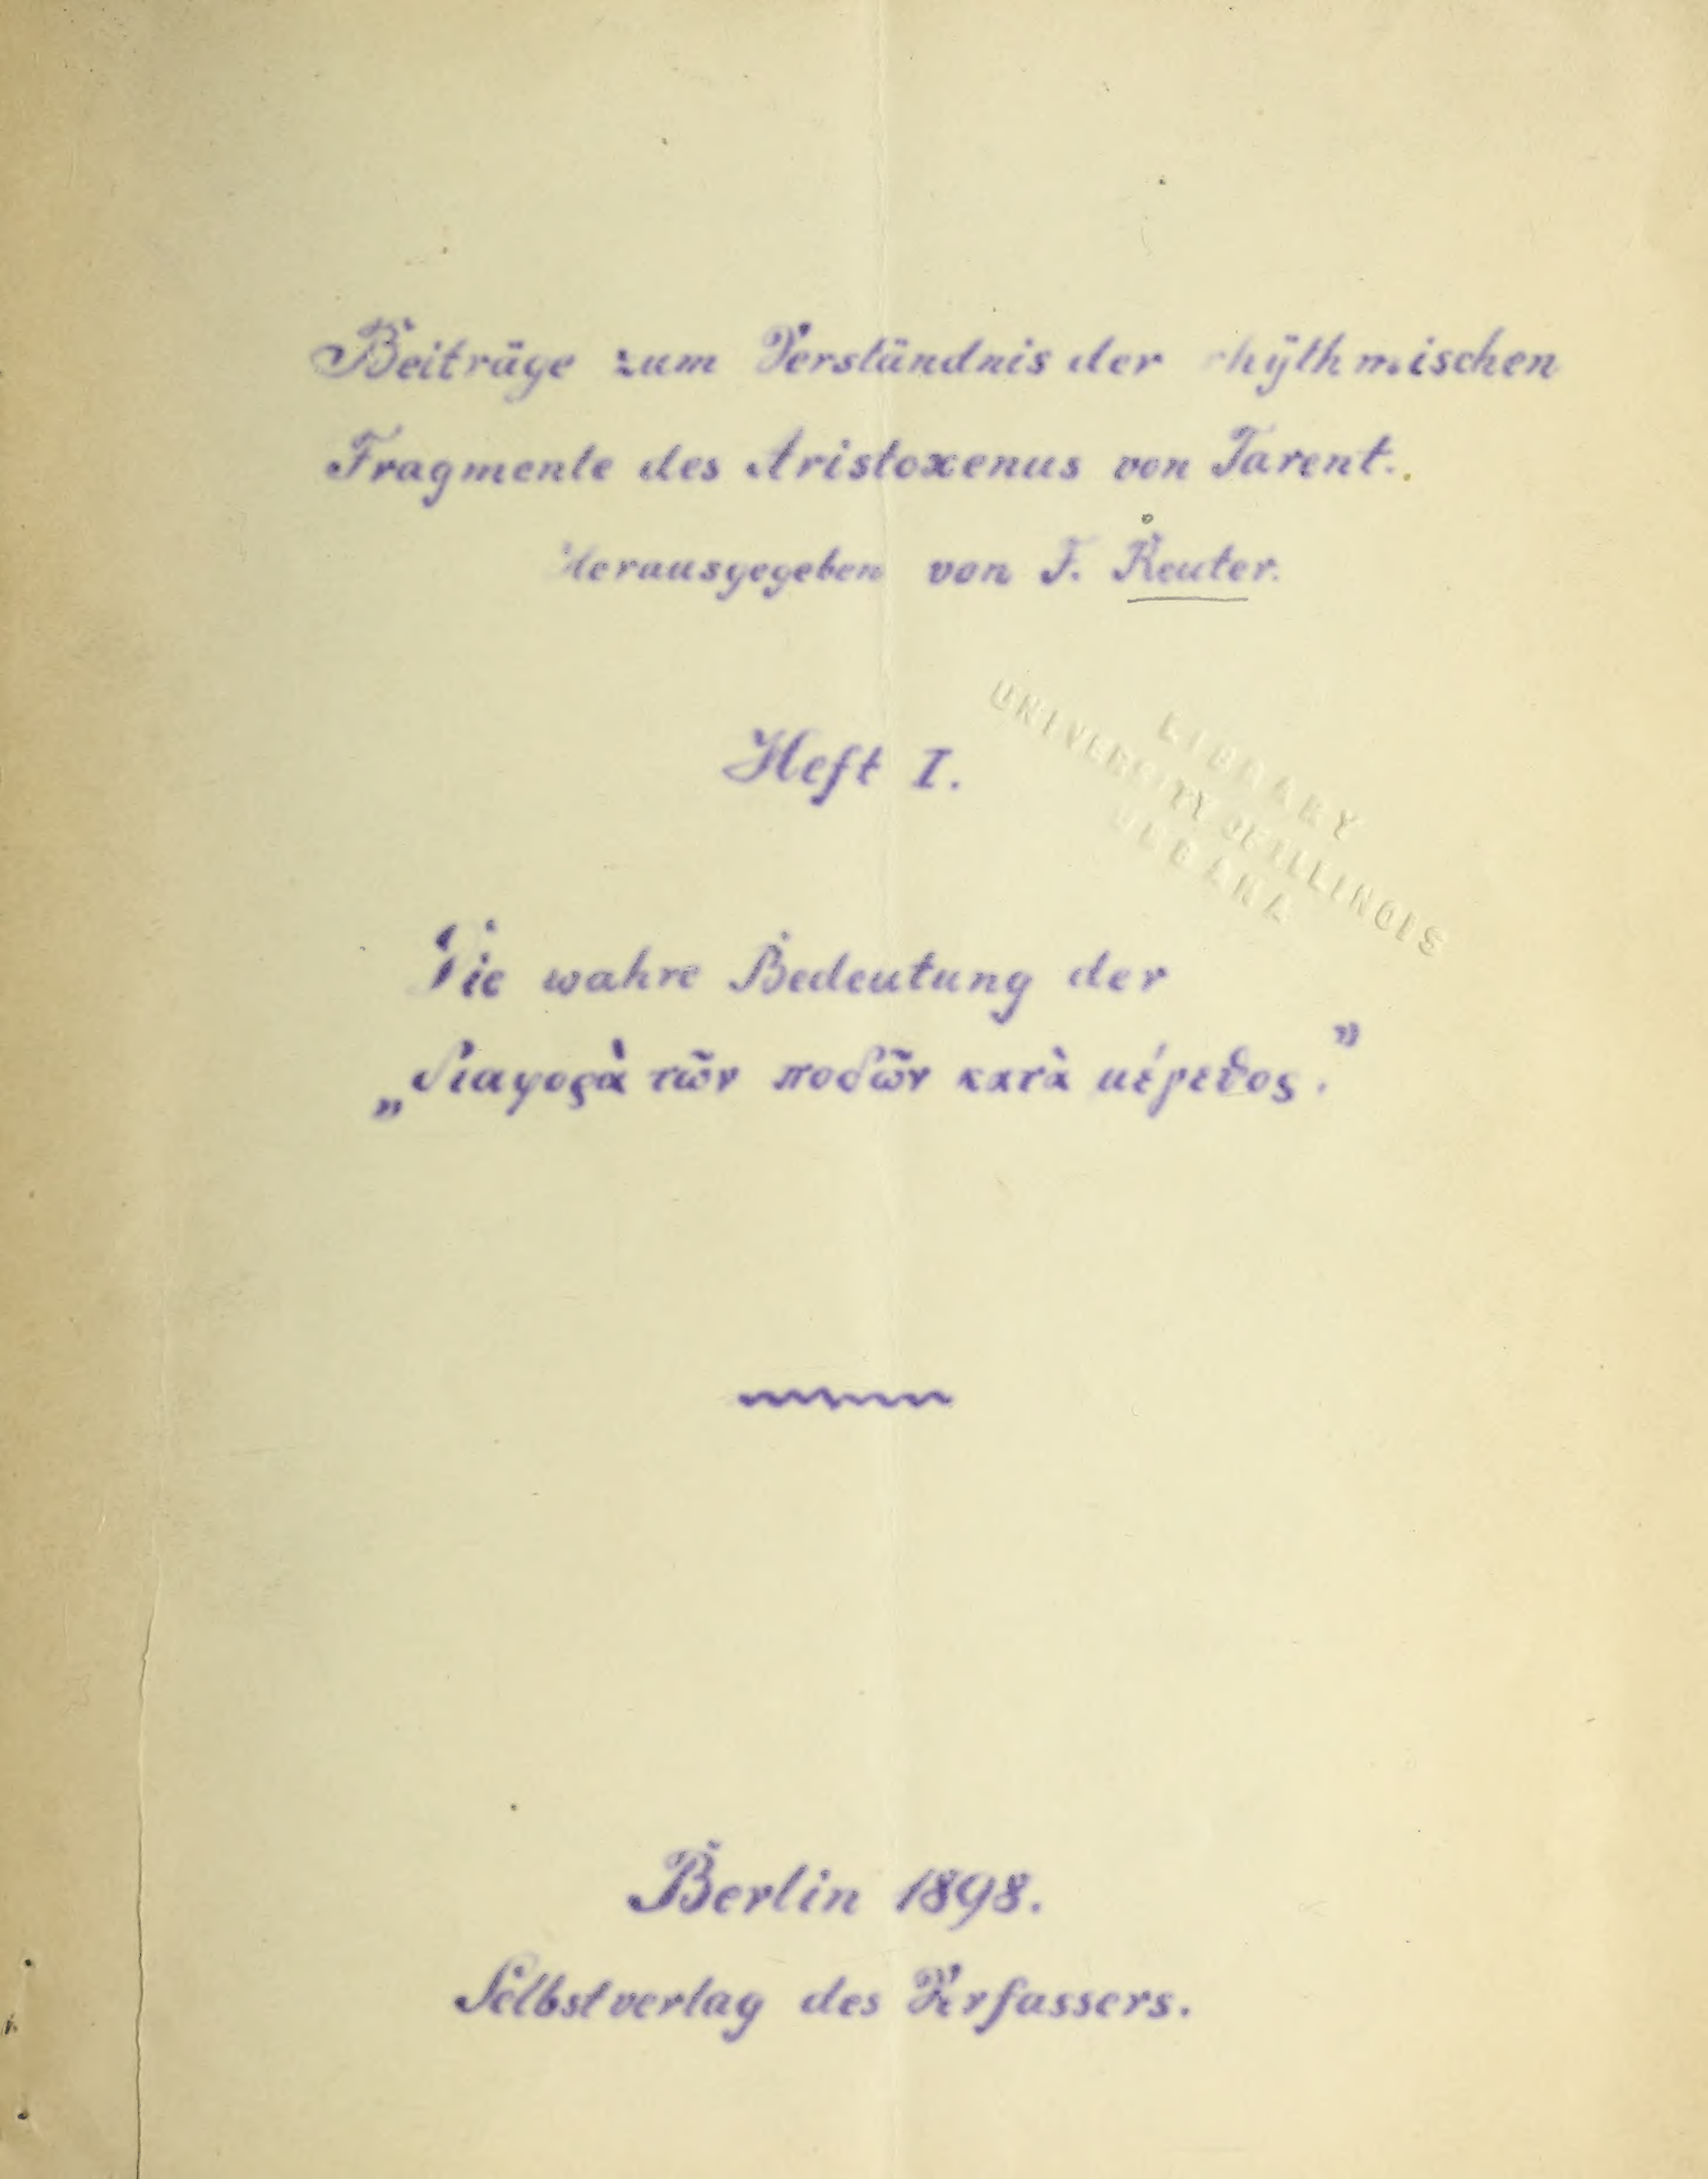 Beiträge zum Verständnis der rhÿthmischen
Fragmente des Aristoxenus von Tarent.
Herausgegeben von F. Reuter.
Heft I.
LIBRARY
UNIVERSITY OF ILLINOIS
URBANA
Die wahre Bedeutung der
„διαφορὰ τῶν ποδῶν κατὰ μέγεθος.”
Berlin 1898.
Selbstverlag des Verfassers.